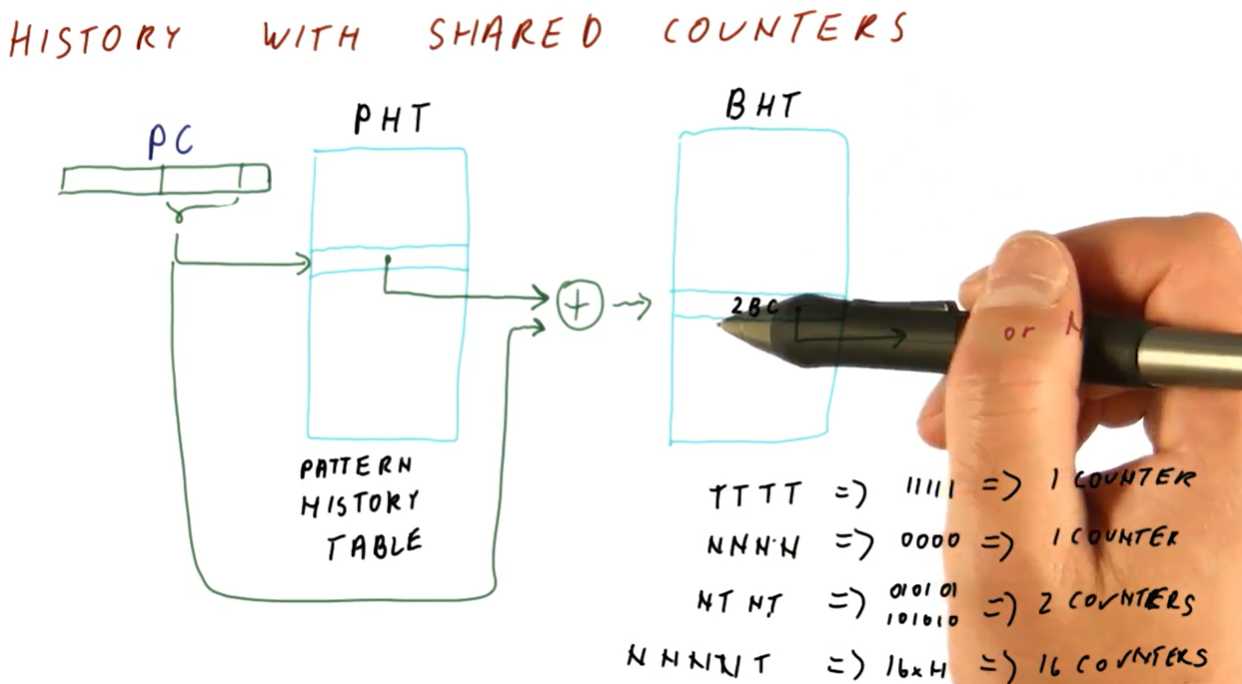 HISTORY WITH SHARED COUNTERS
PC
PHT
BHT
+
2BC
or
PATTERN
HISTORY
TABLE
TTTT => 11111 => 1 COUNTER
NNNN => 0000 => 1 COUNTER
NTNT => 010101 101010 => 2 COUNTERS
NNNNT => 16xH => 16 COUNTERS